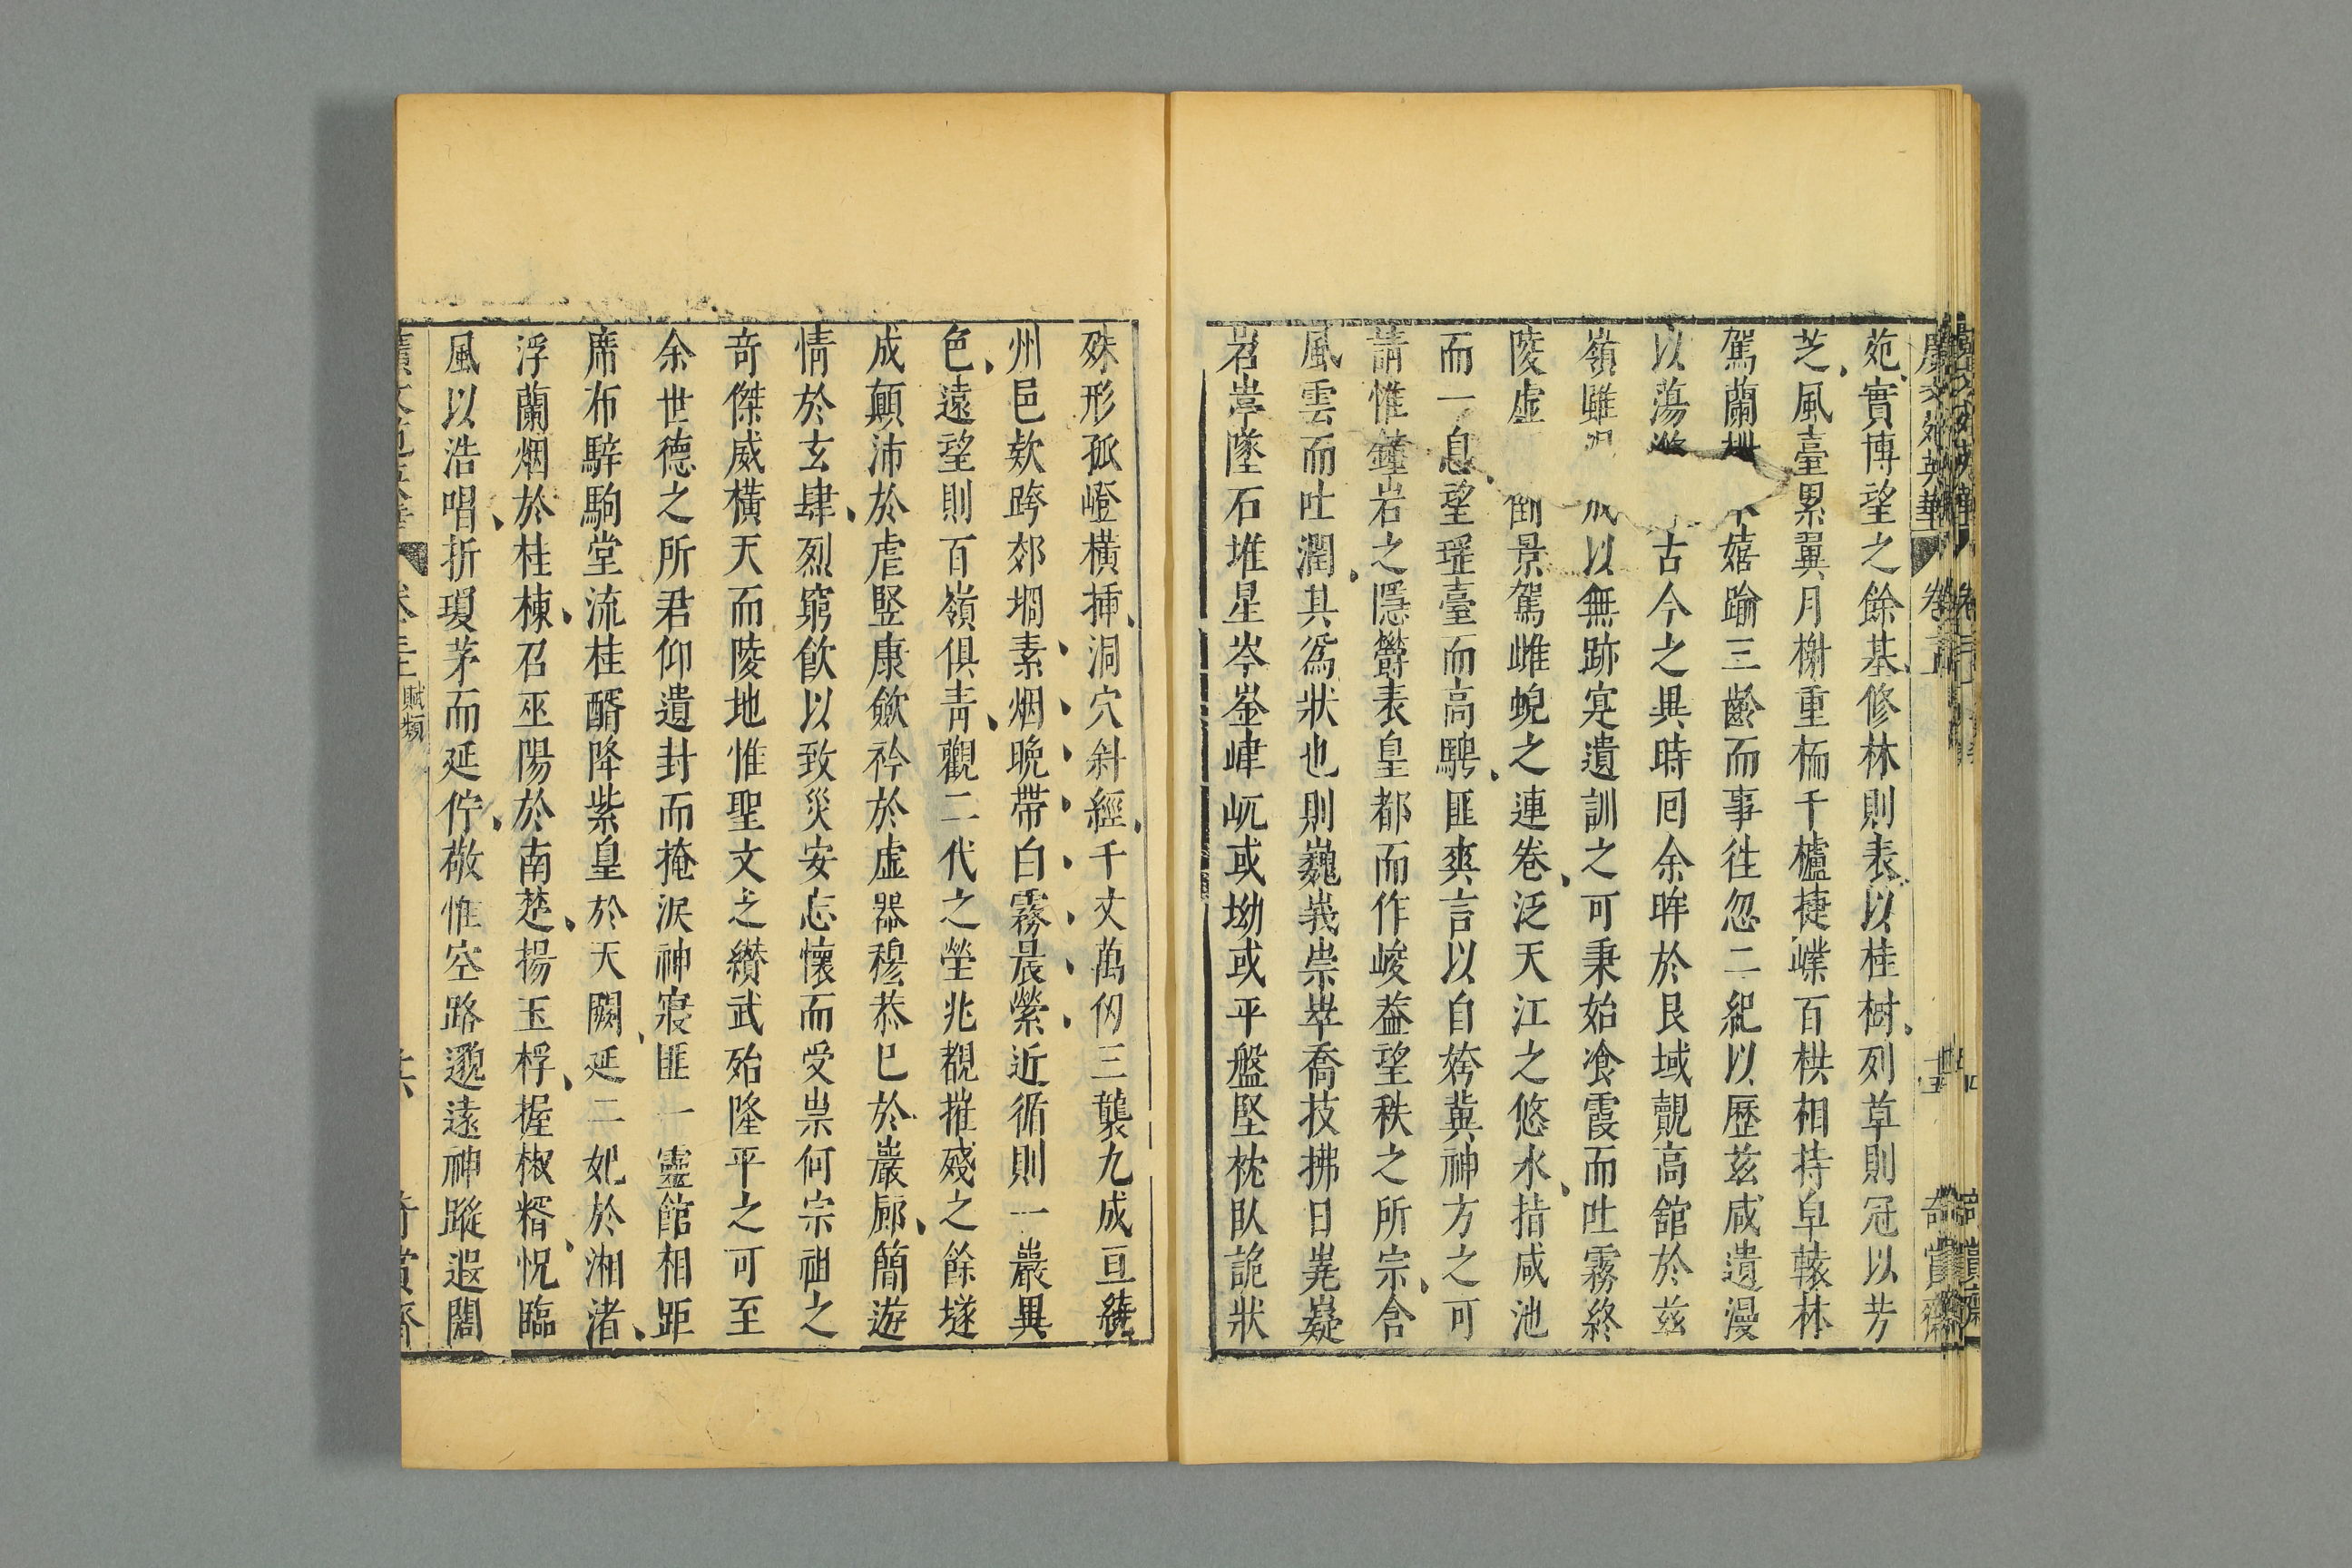 廣文苑英華 卷 奇賞齋
苑實博望之餘基修林則表以桂樹列草則冠以芳
芝風臺累翼月榭重栭千櫨捷嶫百栱相持皐轅林
駕蘭 嬉踰三齡而事徃忽二紀以歷茲咸遺漫
以蕩滌 古今之異時囘余眸於艮域覿高舘於茲
嶺雖 以無跡寔遺訓之可秉始飡霞而吐霧終
陵虚 倒景駕雌蜺之連卷泛天江之悠永揹咸池
而一息望瑶臺而高騁匪爽言以自姱冀神方之可
請惟鍾岩之隱欝表皇都而作峻葢望秩之所宗含
風雲而吐潤其爲狀也則巍峩崇崒喬技拂日嶤嶷
岧嵉墜石堆星岑崟嵂屼或坳或平盤堅枕臥詭狀
殊形孤嶝橫挿洞穴斜經千丈萬仭三襲九成亘繞
州邑欵跨郊坰素烟晩帶白霧晨縈近循則一巖異
色遠望則百嶺俱靑觀二代之塋兆覩摧殘之餘墜
成顛沛於虐竪康斂衿於虛器穆恭巳於巖廊簡遊
情於玄肆烈窮飮以致災安忘懷而受祟何宗祖之
奇傑威横天而陵地惟聖文之纉武殆隆平之可至
余世德之所君仰遺封而掩淚神寢匪一靈館相距
席布騂駒堂流桂醑降紫皇於天闕延二妃於湘渚
浮蘭烟於桂棟召巫陽於南楚揚玉桴握椒糈怳臨
風以浩唱折瓊茅而延佇敬惟空路邈遠神蹤遐闊
賦類